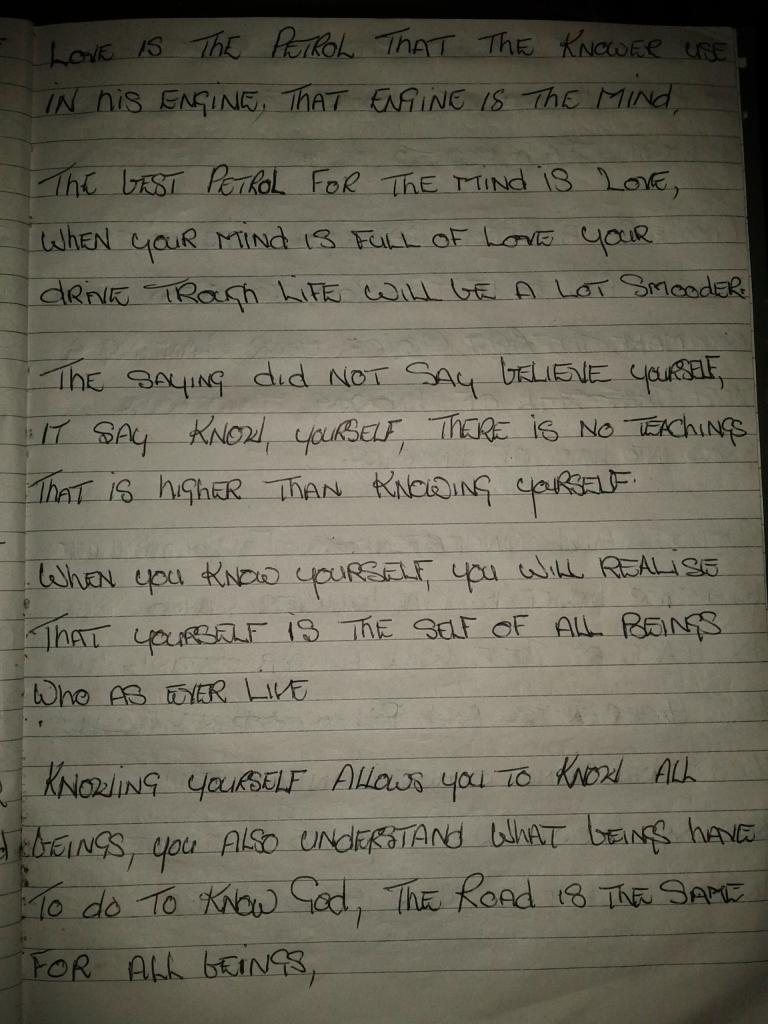 LOVE IS THE PETROL THAT THE KNOWER USE
IN HIS ENGINE, THAT ENGINE IS THE MIND,
THE BEST PETROL FOR THE MIND IS LOVE,
WHEN YOUR MIND IS FULL OF LOVE YOUR
DRIVE TROUGH LIFE WILL BE A LOT SMOODER.
THE SAYING did NOT SAY BELIEVE YOURSELF,
IT SAY KNOW, YOURSELF, THERE IS NO TEACHINGS
THAT IS HIGHER THAN KNOWING YOURSELF.
WHEN YOU KNOW YOURSELF, YOU WILL REALISE
THAT YOURSELF IS THE SELF OF ALL BEINGS
WHO AS EVER LIVE
KNOWING YOURSELF ALLOWS YOU TO KNOW ALL
BEINGS, YOU ALSO UNDERSTAND WHAT BEINGS HAVE
TO do TO KNOW God, THE ROAD IS THE SAME
FOR ALL BEINGS,